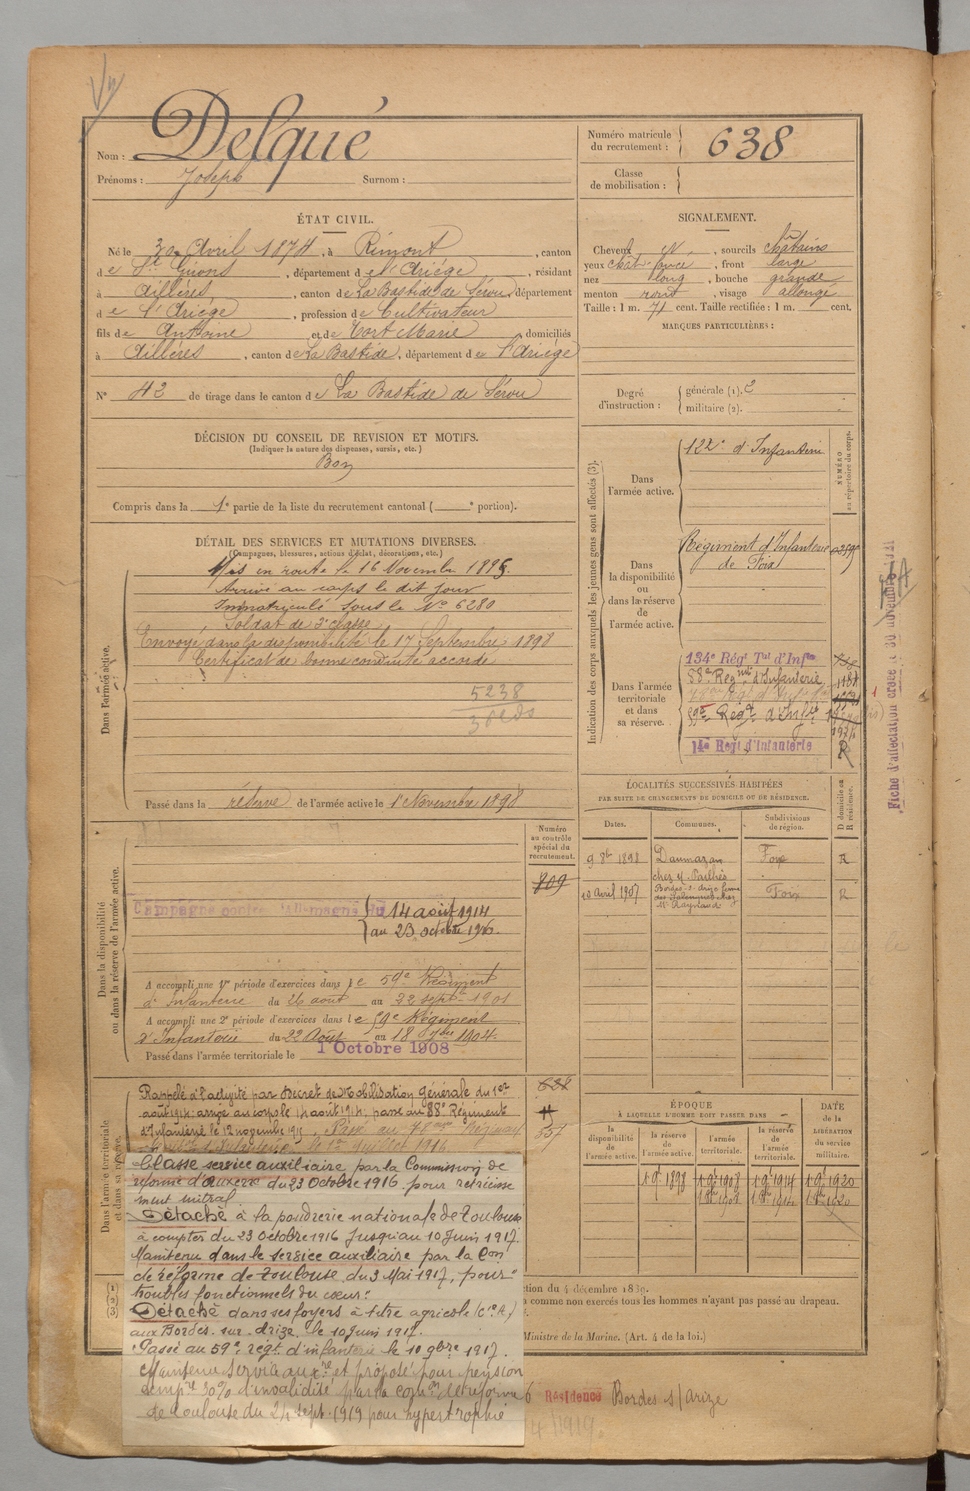 Nom : Delqué
Prénoms : Joseph Surnom :
Numéro matricule du recrutement : 638
Classe de mobilisation :
ÉTAT CIVIL.
Né le Avril 1874, à Rimont, canton
de St Girons, département de l'Ariége, résidant
à Aillères, canton de La Bastide de Sérou, département
de l'Ariége, profession de Cultivateur
fils de Antoine et de Tort Marie domiciliés
à Aillères, canton de La Bastide, département de l'Ariége
N° 42 de tirage dans le canton de La Bastide de Sérou
SIGNALEMENT.
Cheveux N, sourcils châtains
yeux chât foncé, front large
nez long, bouche grande
menton rond, visage allongé
Taille : 1 m. 71 cent. Taille rectifiée : 1 m. cent.
MARQUES PARTICULIÈRES :
DÉCISION DU CONSEIL DE REVISION ET MOTIFS.
(Indiquer la nature des dispenses, sursis, etc.)
Bon
Compris dans la 1e partie de la liste du recrutement cantonal ( e portion).
Degré d'instruction :
générale (1). 2
militaire (2).
DÉTAIL DES SERVICES ET MUTATIONS DIVERSES.
(Campagnes, blessures, actions d'éclat, décorations, etc.)
Dans l'armée active.
Mis en route le 16 Novembre 1895.
Arrivé au corps le dit jour
Immatriculé sous le No 6280
Soldat de 2e classe
Envoyé dans la disponibilité le 17 Septembre 1898
Certificat de bonne conduite accordé
5238
Passé dans la réserve de l'armée active le 1er Novembre 1898
Indication des corps auxquels les jeunes gens sont affectés (3).
NUMÉRO au répertoire du corps.
Dans l'armée active.
122e d'Infanterie
Dans la disponibilité ou dans la réserve de l'armée active.
Régiment d'Infanterie
de Foix
Dans l'armée territoriale et dans sa réserve.
134e Régt Tal d'Infie
88e Regmt d'Infanterie
59e Régt d'Infie
14e Regt d'Infanterie
R
Fiche d'affectation créée le 30 novembre
LOCALITÉS SUCCESSIVES HABITÉES
PAR SUITE DE CHANGEMENTS DE DOMICILE OU DE RÉSIDENCE.
Dates. Communes. Subdivisions de région. D domicile ou R résidence.
9 8bre 1898 Daumazan Foix R
chez M. Pailhès
10 Avril 1907 Bordes-s-Arize ferme Foix R
chez
Mr Raynaud
Dans la disponibilité ou dans la réserve de l'armée active.
Numéro au contrôle spécial du recrutement.
809
Campagne contre l'Allemagne du 14 août 1914
au 23 octobre 1916.
A accompli une 1re période d'exercices dans le 59e Régiment
d'Infanterie du 26 août au 22 septbre 1901
A accompli une 2e période d'exercices dans le 59e Régiment
d'Infanterie du 22 Août au 18 7bre 1904.
Passé dans l'armée territoriale le 1 Octobre 1908
Dans l'armée territoriale et dans sa réserve.
Rappelé à l'activité par Décret de Mobilisation Générale du 1er
août 1914: arrivé au corps le 14 août 1914, passé au 88e Régiment
d'Infanterie le 12 novembre 1915. Passé au Régiment
d'Infanterie le 1er Juillet 1916
Classé service auxiliaire par la Commission de
réforme d'Auxerre du 23 Octobre 1916 pour rétrécisse
ment mitral
Détaché à la poudrerie nationale de Toulouse
à compter du 23 Octobre 1916 Jusqu'au 10 Juin 1917.
Maintenu dans le service auxiliaire par la Con
de réforme de Toulouse du 3 Mai 1917, pour "
troubles fonctionnels du cœur."
Détaché dans ses foyers à titre agricole (cie A)
aux Bordes-sur-Arize le 10 Juin 1917.
Passé au 59e régt d'infanterie le 10 9bre 1917.
Maintenu Service auxre et proposé pour pension
temp're 30% d'invalidité par la comon de réforme
de Toulouse du 24 Sept. 1919 pour hypertrophie
ÉPOQUE
À LAQUELLE L'HOMME DOIT PASSER DANS
la disponibilité de l'armée active. la réserve de l'armée active. l'armée territoriale. la réserve de l'armée territoriale. DATE de la LIBÉRATION du service militaire.
1 9bre 1898 1 9bre 1908 1 9bre 1914 1 9bre 1920
ction du 4 décembre 1889.
a comme non exercés tous les hommes n'ayant pas passé au drapeau.
Ministre de la Marine. (Art. 4 de la loi.)
Résidence Bordes s/Arize